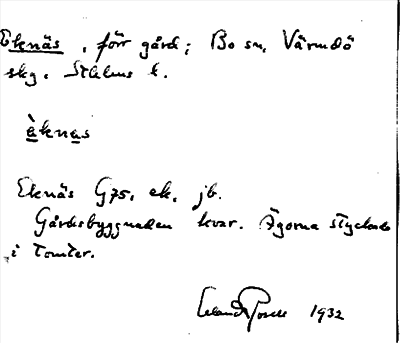 Eknäs, förr gård; Bo sn, Värmdö
skg. Sthlms l.
èknas
Eknäs G75, ek. jb.
Gårdsbyggnaden kvar. Ägorna styckade
i tomter.
1932